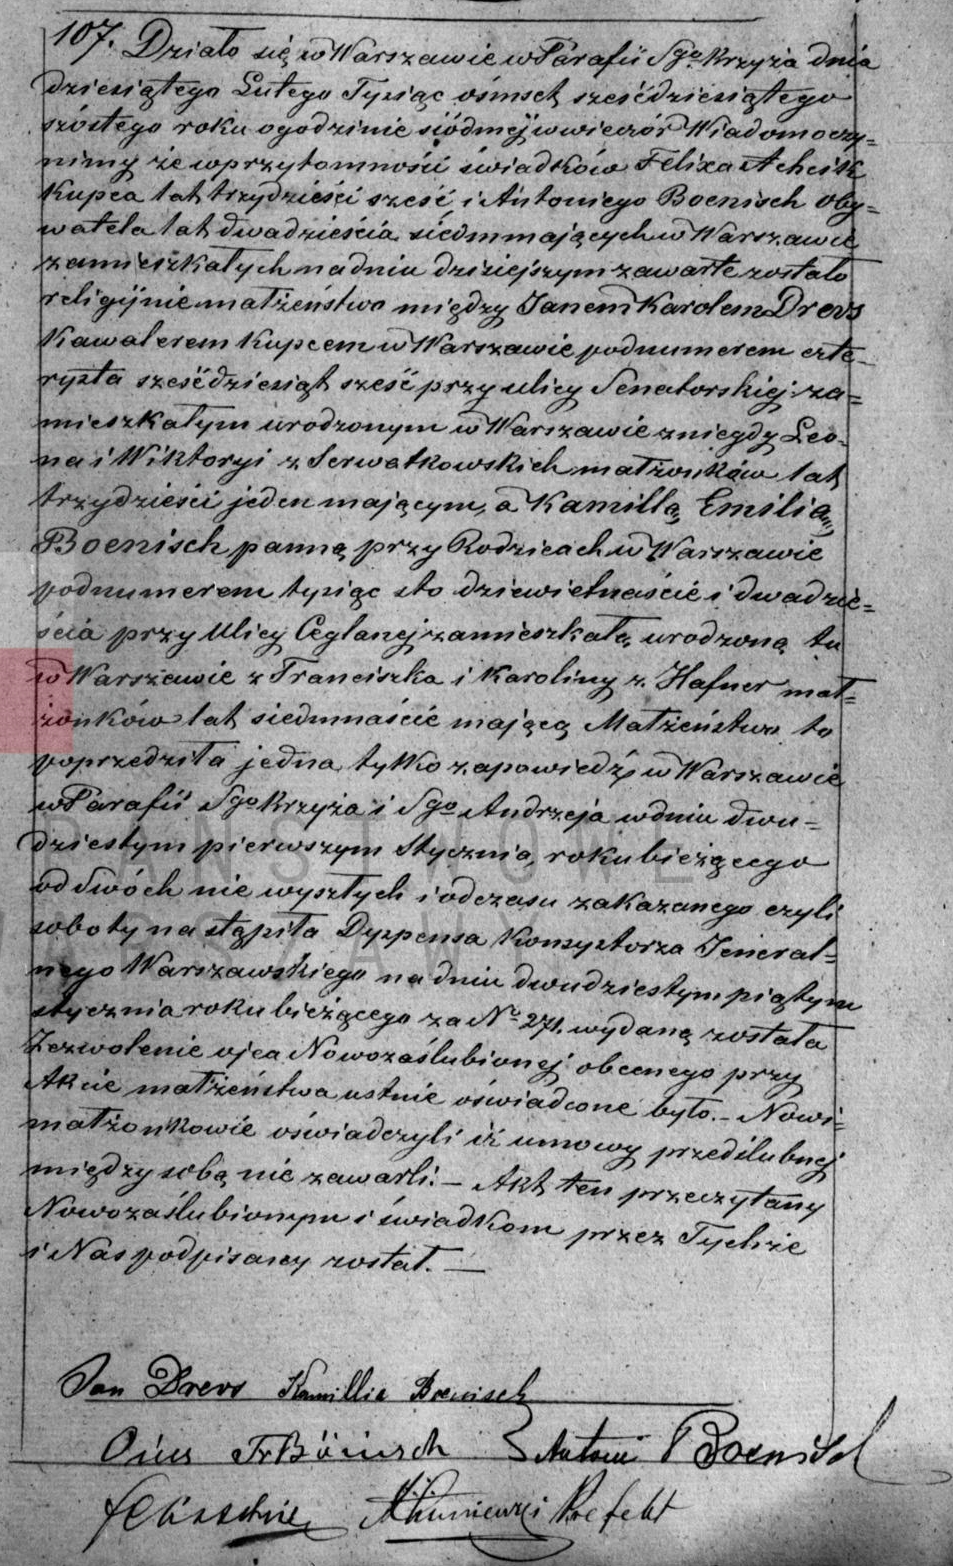 107. Działo się w Warszawie w Parafii Sgo Krzyża dnia
dziesiątego Lutego Tysiąc ośmset sześćdziesiątego
szóstego roku o godzinie siódmej w wieczór Wiadomo czy=
nimy że w przytomności świadków Felixa
Kupca lat trzydzieści sześć i Antoniego Boenisch Oby=
watela lat dwadzieścia siedm mających w Warszawie
zamieszkałych na dniu dzisiejszym zawarte zostało
religijnie małżeństwo między Janem Karolem Drevs
Kawalerem Kupcem w Warszawie pod numerem czte=
rysta sześćdziesiąt sześć przy ulicy Senatorskiej za=
mieszkałym urodzonym w Warszawie z niegdy Leo=
na i Wiktoryi z Serwatkowskich małżonków lat
trzydzieści jeden mającym, a Kamillą Emilią
Boenisch panną przy Rodzicach w Warszawie
pod numerem tysiąc sto dziewietnaście i dwadzie=
ścia przy Ulicy Ceglanej zamieszkałą urodzoną tu
w Warszawie z Franciszka i Karoliny z Hafner mał=
żonków lat siedmnaście mającą Małżeństwo to
poprzedziła jedna tylko zapowiedź w Warszawie
w Parafii Sgo Krzyża i Sgo Andrzeja w dniu dwu=
dziestym pierwszym Stycznia, roku bieżącego
od dwóch nie wyszłych i od czasu zakazanego czyli
soboty nastąpiła Dyspensa Konsystorza Jeneral=
nego Warszawskiego na dniu dwudziestym piątym
stycznia roku bieżącego za No 271. wydaną została
Zezwolenie ojca Nowozaślubionej obecnego przy
Akcie małżeństwa ustnie oświadczone było. – Nowi=
małżonkowie oświadczyli iż umowy przedślubnej
między sobą nie zawarli. – Akt ten przeczytany
Nowozaślubionym i świadkom przez Tychże
i Nas podpisany został. —
Jan Drevs Kamillia Boenisch
Fr Bönisch Antoni Boenisch
Prefekt
PAŃSTWOWE
WARSZAWY